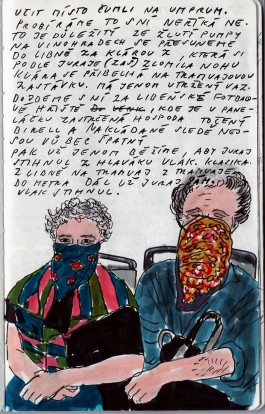 UČIT MÍSTO ČUMLI NA UMPRUM.
PROBÍRÁME TO S NÍ NEŘÍKÁ NE.
TO JE DŮLEŽITÝ. ZE ŽLUTÝ PUMPY
NA VINOHRADECH SE PŘESUNEME
DO LIBNĚ ZA KLÁROU Ž., KTERÁ SI
PODLE JURAJE (ZAS) ZLOMILA NOHU
KLÁRA SE PŘIBELHA NA TRAMVAJOVOU
ZASTÁVKU. MÁ JENOM UTRŽENÝ VAZ.
DOJDEME S NÍ ZA LIDEŇSKÉ FOTBALO
VÉ HŘIŠTĚ KDE JE V PANE-
LÁČKU ZASTRČENÁ HOSPODA TOČENÝ
BIRELL A NAKLÁDANÉ SLEDĚ NEJ-
SOU VŮBEC ŠPATNÝ
PAK UŽ JENOM BĚŽÍME, ABY JURAJ
STIHNUL Z HLAVÁKU VLAK. KLASIKA.
Z LIBNĚ NA TRAMVAJ Z TRAMVAJE
DO METRA DÁL UŽ JURAJ SÁM.
VLAK STIHNUL.